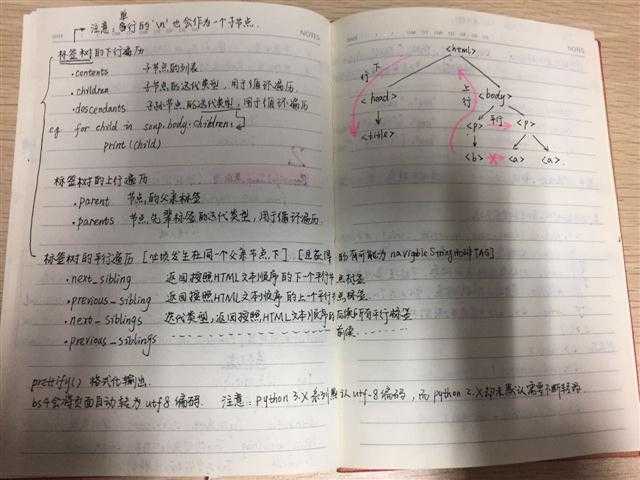 注意：单行的'\n'也会作为一个子节点.
标签树的下行遍历
.contents 子节点的列表
.children 子节点的迭代类型，用于循环遍历
.descendants 子孙节点的迭代类型，用于循环遍历
eg for child in soup.body.children:
print(child)
标签树的上行遍历
.parent 节点的父亲标签
.parents 节点先辈标签的迭代类型，用于循环遍历
标签树的平行遍历 [必须发生在同一个父亲节点下] [且获得的有可能为navigableString而非TAG]
.next_sibling 返回按照HTML文本顺序的下一个平行节点标签
.previous_sibling 返回按照HTML文本顺序的上一个平行节点标签
.next_siblings 迭代类型，返回按照HTML文本顺序的后续所有平行标签
.previous_siblings 前续
prettify() 格式化输出
bs4会将页面自动转为utf8编码. 注意：python 3.X系列默认utf-8编码，而python 2.X却未默认需要不断转码.
NOTES
NOTES
<html>
下行
<head>
上行
<body>
<title>
<p>
平行
<p>
<b>
<a>
<a>